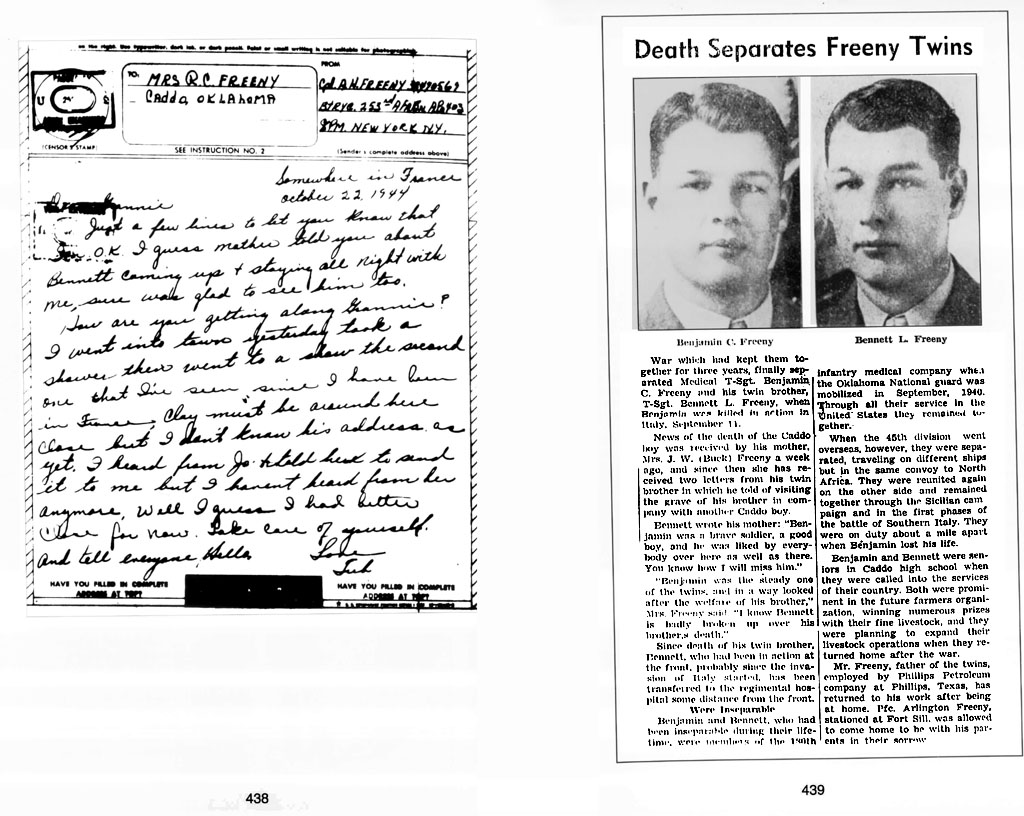 on the right. Use typewriter, dark ink, or dark pencil. Faint or small writing is not suitable for photographing.
TO:
MRS R.C. FREENY
CADDO, OKLAHOMA
FROM
A.H. FREENY
P.M. NEW YORK N.Y.
(CENSOR'S STAMP)
SEE INSTRUCTION NO. 2
(Sender's complete address above)
Somewhere in France
October 22, 1944
Dear Grannie
Just a few lines to let you know that
I'm O.K. I guess mother told you about
Bennett coming up + staying all night with
me, sure was glad to see him too.
How are you getting along Grannie?
I went into town yesterday took a
shower then went to a show the second
one that I've seen since I have been
in France, Clay must be around here
close but I don't know his address as
yet. I heard from Jo. + told her to send
it to me but I havent heard from her
anymore, Well I guess I had better
close for now. Take care of yourself.
And tell everyone Hello
Love
HAVE YOU FILLED IN COMPLETE
ADDRESS AT TOP?
HAVE YOU FILLED IN COMPLETE
ADDRESS AT TOP?
438
Death Separates Freeny Twins
Benjamin C. Freeny
Bennett L. Freeny
War which had kept them to-
gether for three years, finally sep-
arated Medical T-Sgt. Benjamin
C. Freeny and his twin brother,
T-Sgt. Bennett L. Freeny, when
Benjamin was killed in action in
Italy, September 11.
News of the death of the Caddo
boy was received by his mother,
Mrs. J. W. (Buck) Freeny a week
ago, and since then she has re-
ceived two letters from his twin
brother in which he told of visiting
the grave of his brother in com-
pany with another Caddo boy.
Bennett wrote his mother: "Ben-
jamin was a brave soldier, a good
boy, and he was liked by every-
body over here as well as there.
You know how I will miss him."
"Benjamin was the steady one
of the twins, and in a way looked
after the welfare of his brother,"
Mrs. Freeny said "I know Bennett
is badly broken up over his
brother,s death."
Since death of his twin brother,
Bennett, who had been in action at
the front, probably since the inva-
sion of Italy started, has been
transferred to the regimental hos-
pital some distance from the front.
Were Inseparable
Benjamin and Bennett, who had
been inseparable during their life-
time, were members of the 180th
infantry medical company when
the Oklahoma National guard was
mobilized in September, 1940.
Through all their service in the
United States they remained to-
gether.
When the 45th division went
overseas, however, they were sepa-
rated, traveling on different ships
but in the same convoy to North
Africa. They were reunited again
on the other side and remained
together through the Sicilian cam
paign and in the first phases of
the battle of Southern Italy. They
were on duty about a mile apart
when Benjamin lost his life.
Benjamin and Bennett were sen-
iors in Caddo high school when
they were called into the services
of their country. Both were promi-
nent in the future farmers organi-
zation, winning numerous prizes
with their fine livestock, and they
were planning to expand their
livestock operations when they re-
turned home after the war.
Mr. Freeny, father of the twins,
employed by Phillips Petroleum
company at Phillips, Texas, has
returned to his work after being
at home. Pfc. Arlington Freeny,
stationed at Fort Sill, was allowed
to come home to be with his par-
ents in their sorrow
439